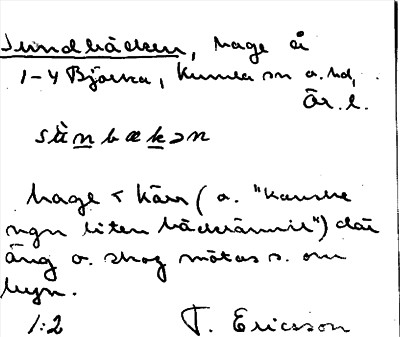 Sundbäcken, hage å
1-4 Björka, Kumla sn o. hd,
Ör. l.
sùnbækən
hage < kärr (o. "kanske
ngn liten bäckrännil") där
äng o. skog mötas s. om
byn.
1:2 T. Ericsson